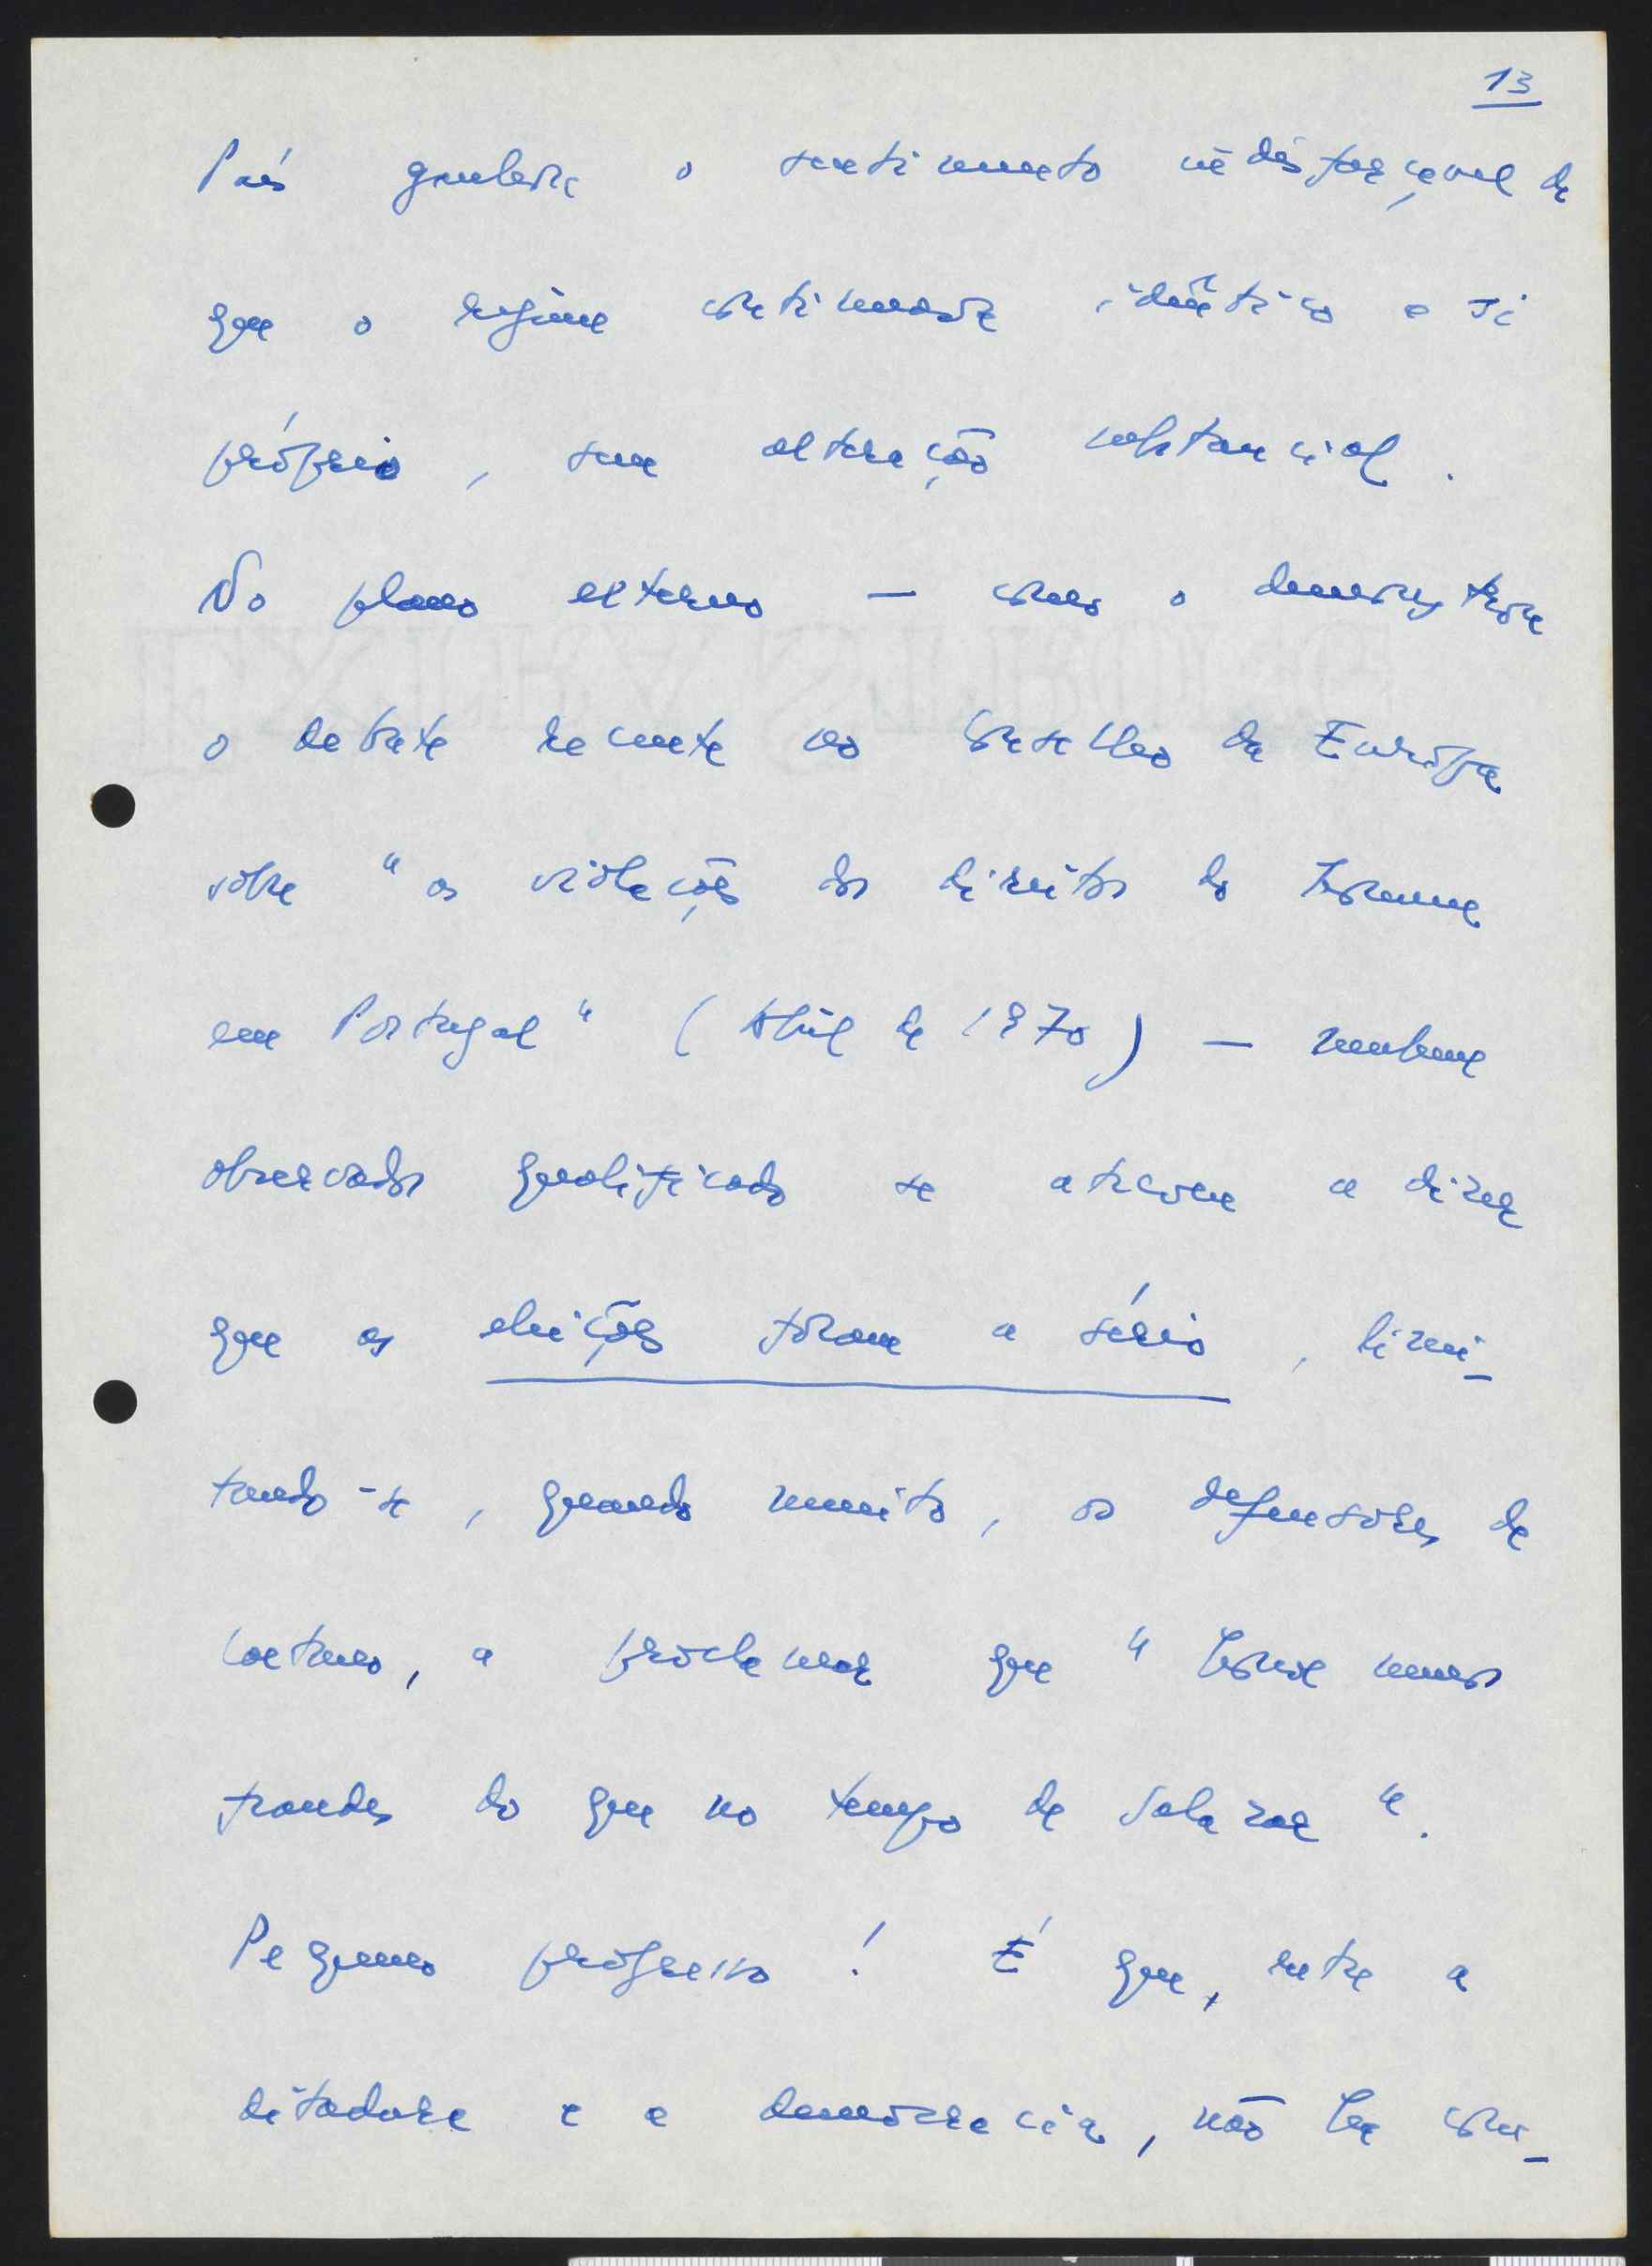 13
País ganhara o sentimento indisfarçável de
que o regime continuava idêntico a si
próprio, sem alteração substancial.
No plano externo — como o demonstrou
o debate recente no Conselho da Europa
sobre "as violações dos direitos do Homem
em Portugal" (Abril de 1970) — nenhum
observador qualificado se atreveu a dizer
que as eleições foram a sério, limi-
tando-se, quando muito, os defensores de
Caetano, a proclamar que "houve menos
fraudes do que no tempo de Salazar".
Pequeno progresso! É que, entre a
ditadura e a democracia, não há